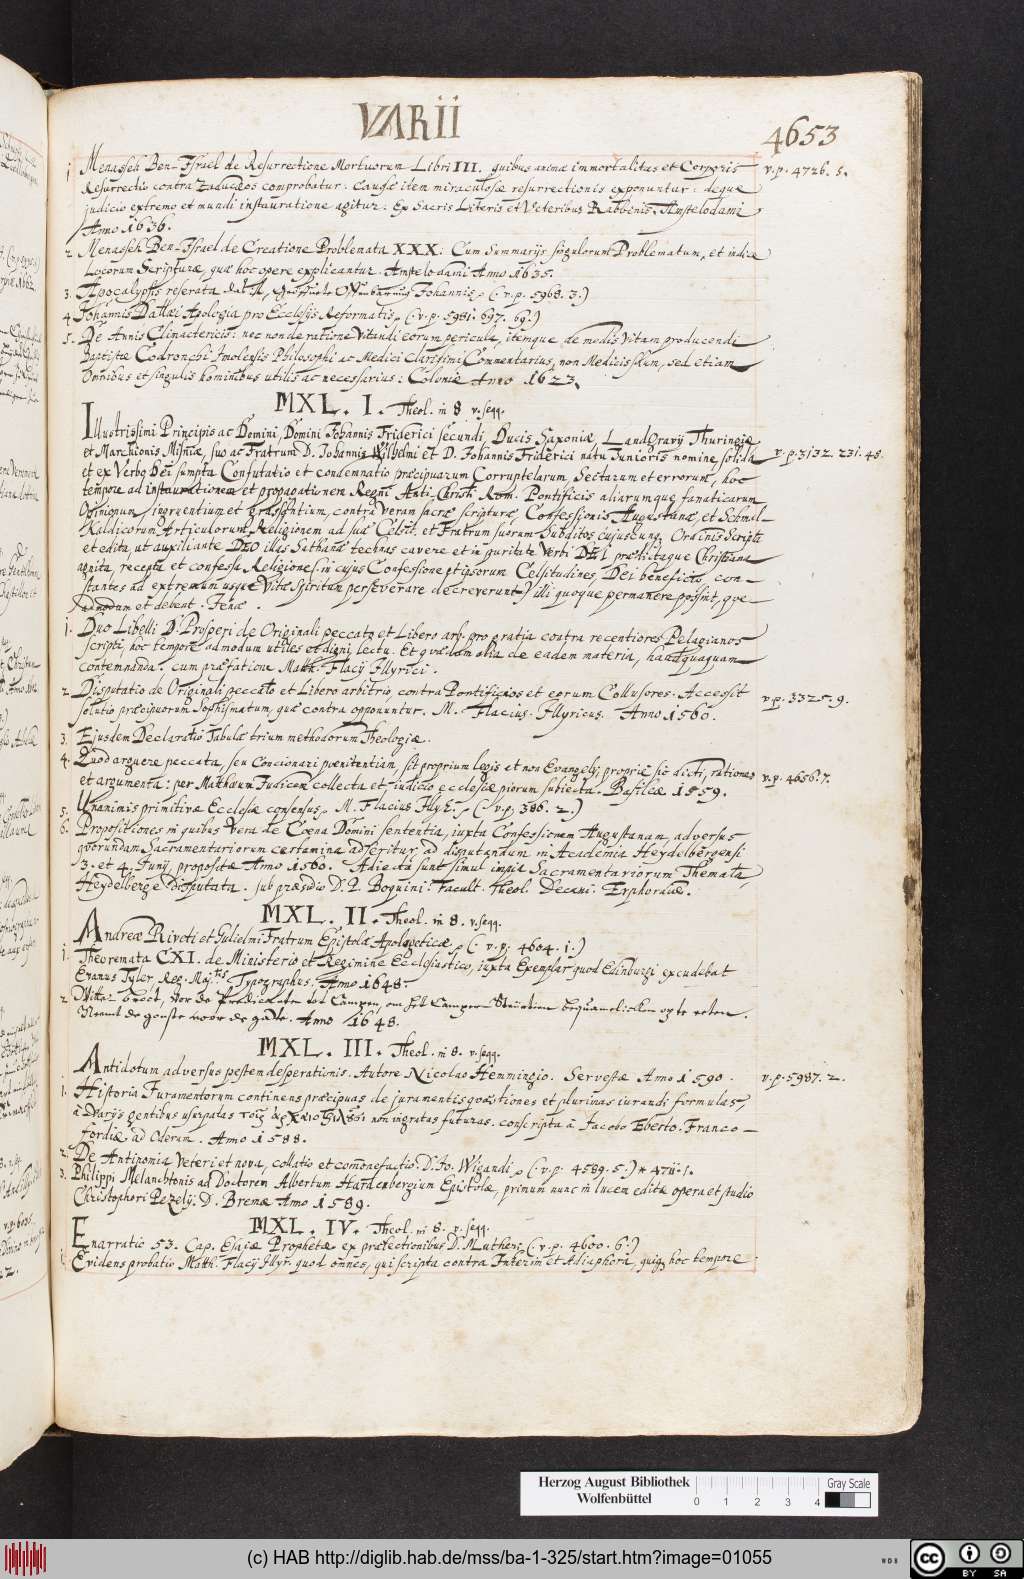 VARII
4653
1 Menasseh Ben-Israel de Resurrectione Mortuorum Libri III. quibus animae immortalitas et Corporis v.p. 4726. 5.
Resurrectio contra Zaducaeos comprobatur: Causae item miraculosae resurrectionis exponuntur: deque
judicio extremo et mundi instauratione agitur: Ex Sacris Literis et Veteribus Rabbinis. Amstelodami
Anno 1636.
2 Menasseh Ben-Israel de Creatione Problemata XXX: Cum Summarijs singulorum Problematum, et indice
Locorum Scripturae, quae hoc opere explicantur. Amstelodami Anno 1635.
3. Apocalypsis reserata dat is, Geopende Offenbarung Johannis, (:v.p. 5968. 3.)
4 Johannis Dallaei Apologia pro Ecclesijs Reformatis, (:v.p. 5981. 697. 69:)
5. De Annis Climactericis: nec non de ratione Vitandi eorum pericula, itemque de modis Vitam producendi
Baptistae Codronchi Imolensis Philosophi ac Medici Clarissimi Commentarius, non Medicis solum, sed etiam
Omnibus et singulis hominibus utilis ac necessarius: Coloniae Anno 1623.
MXL. I. Theol. in 8 v. seqq.
Illustrissimi Principis ac Domini, Domini Johannis Friderici secundi, Ducis Saxoniae, LandGravij Thuringiae
et Marchionis Misniae, suo ac Fratrum D. Johannis Wilhelmi et D. Johannis Friderici natu Junioris nomine, solida v.p. 3132. 231. 48.
et ex Verbo Dei sumpta Confutatio et condemnatio praecipuarum Corruptelarum, Sectarum et errorum, hoc
tempore ad instaurationem et propagationem Regni Anti-Christi Rom. Pontificis aliarumque fanaticarum
Opinionum ingruentium et grassantium, contra Veram sacrae scripturae, Confessionis Augustanae, et Schmal-
Kaldicorum Articulorum Religionem ad suae Celsit. et Fratrum suorum Subditos cujuscunque Ordinis Scripta
et edita, ut auxiliante DEO illas Sathanae technas cavere et in puritate Verbi DEI praedictaque Christiana
agnita, recepta et confessa Religione (in cujus Confessione et ipsorum Celsitudines Dei beneficio, con-
stantes ad extremum usque Vitae Spiritum perseverare decreverunt) illi quoque permanere possint, que-
admodum et debent. Jenae.
1. Duo Libelli D. Prosperi de Originali peccato et Libero arb. pro gratia contra recentiores Pelagianos
scripti, hoc tempore admodum utiles et digni lectu. Et quaedam alia de eadem materia, haudquaquam
contemnenda. cum praefatione Matth. Flacij Illyrici.
2 Disputatio de Originali peccato et Libero arbitrio, contra Pontificios et eorum Collusores. Accessit
solutio praecipuorum Sophismatum, quae contra opponuntur. M. Flacius Illyricus. Anno 1560. v.p. 3325. 9.
3. Ejusdem Declaratio Tabulae trium methodorum Theologiae.
4. Quod arguere peccata, seu Concionari poenitentiam, sit proprium legis et non Evangelij proprie sic dicti, rationes
et argumenta: per Matthaeum Judicem collecta et judicio ecclesiae piorum subiecta. Basileae 1559. v.p. 4656. 7.
5. Unanimis primitivae Ecclesiae consensus, M. Flacius Illyr. (:v.p. 386. 2.)
6. Propositiones in quibus Vera de Coena Domini sententia, iuxta Confessionem Augustanam, adversus
quorundam Sacramentariorum certamina adseritur, ad disputandum in Academia Heydelbergensi
3. et 4. Junij propositae Anno 1560. Adiecta sunt simul impia Sacramentariorum Themata,
Heydelbergae disputata. sub praesidio D. P. Boquini. Facult. Theol. Decani. Erphordiae.
MXL. II. Theol. in 8. v. seqq.
Andreae Riveti et Gulielmi Fratrum Epistolae Apologeticae, (: v.p. 4604. 1.)
1. Theoremata CXI. de Ministerio et Regimine Ecclesiastico, iuxta Exemplar quod Edinburgi excudebat
Evanus Tyler, Reg. Maj.tis Typographus. Anno 1648.
2 Anno 1648.
MXL. III. Theol. in 8. v. seqq.
Antidotum adversus pestem desperationis. Autore Nicolao Hemmingio. Servestae Anno 1590. v.p. 5987. 2.
1. Historia Juramentorum continens praecipuas de juramentis quaestiones et plurimas iurandi formulas,
à Varijs gentibus usurpatas non ingratas futuras. conscripta à Jacobo Eberto. Franco-
fordiae ad Oderam. Anno 1588.
2. De Antinomia Veteri et nova, collatio et commonefactio D. Jo. Wigandi, (:v.p. 4589. 5.) * 4711. 1.
3. Philippi Melanchtonis ad Doctorem Albertum Hardenbergium Epistolae, primum nunc in lucem editae opera et studio
Christophori Pezelij. D. Bremae Anno 1589.
MXL. IV. Theol. in 8. v. seqq.
Enarratio 53. Cap. Esaiae Prophetae ex praelectionibus D. M. Lutheri (:v.p. 4600. 6:)
1. Evidens probatio Matth. Flacij Illyr. quod omnes, qui scripta contra Interim et Adiaphora, quique hoc tempore
Herzog August Bibliothek
Wolfenbüttel
0 1 2 3 4
Gray Scale
(c) HAB http://diglib.hab.de/mss/ba-1-325/start.htm?image=01055
WDB
cc BY SA